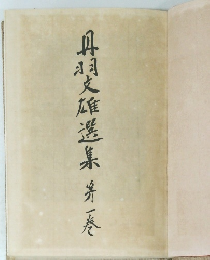 丹羽文雄選集 第一巻